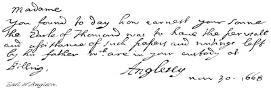 Madame
You found to day how earnest your sonne
the Earle of Thomond was to have the perusall
and assistance of such papers and writings left
by his father as are in your custody at
Billing
Anglesey
Nov 30. 1668
Earl of Anglesea.